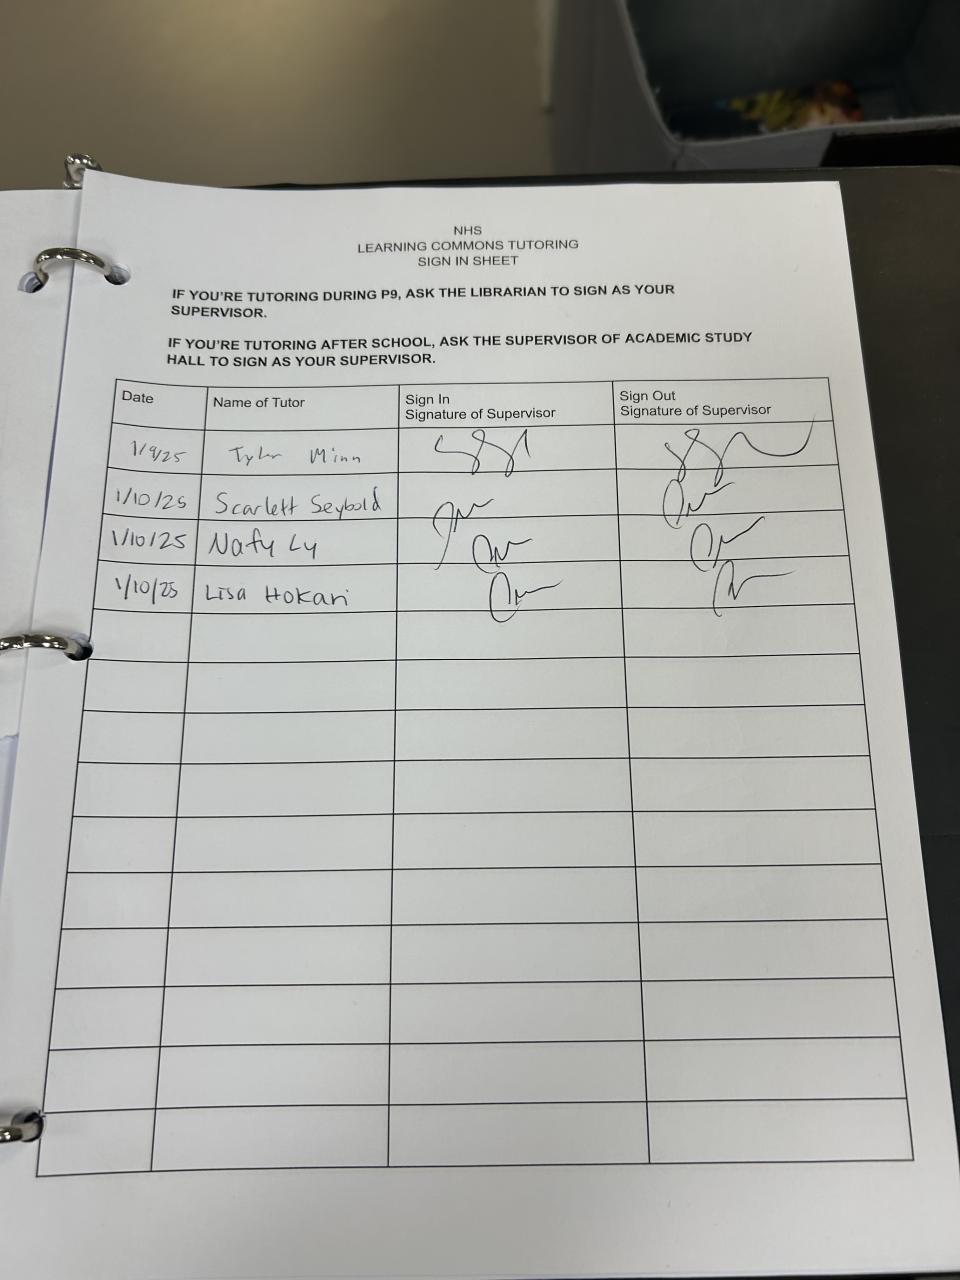 NHS
LEARNING COMMONS TUTORING
SIGN IN SHEET
IF YOU'RE TUTORING DURING P9, ASK THE LIBRARIAN TO SIGN AS YOUR
SUPERVISOR.
IF YOU'RE TUTORING AFTER SCHOOL, ASK THE SUPERVISOR OF ACADEMIC STUDY
HALL TO SIGN AS YOUR SUPERVISOR.
Date Name of Tutor Sign In Sign Out
Signature of Supervisor Signature of Supervisor
1/9/25 Tyler Minn
1/10/25 Scarlett Seybold
1/10/25 Nafy Ly
1/10/25 Lisa Hokari